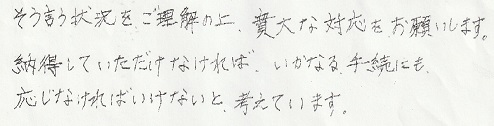 そう言う状況をご理解の上、寛大な対応をお願いします。
納得していただけなければ、いかなる手続にも
応じなければいけないと、考えています。